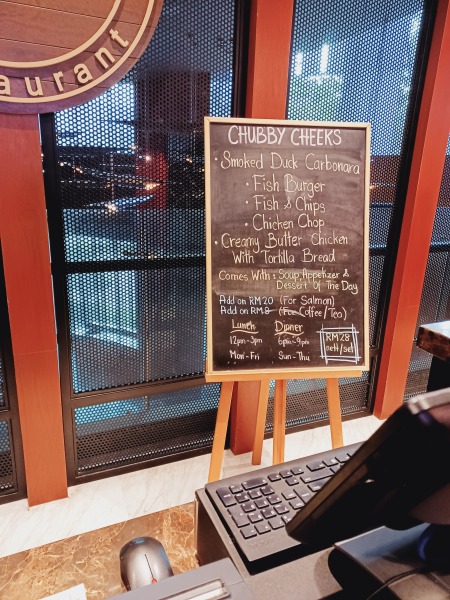 aurant
CHUBBY CHEEKS
• Smoked Duck Carbonara
• Fish Burger
• Fish & Chips
• Chicken Chop
• Creamy Butter Chicken
With Tortilla Bread
Comes With: Soup, Appetizer &
Dessert Of The Day
Add on RM20 (For Salmon)
Add on RM8 (For Coffee/Tea)
Lunch Dinner
12pm-3pm 6pm-9pm
Mon-Fri Sun-Thu
RM28
nett/set